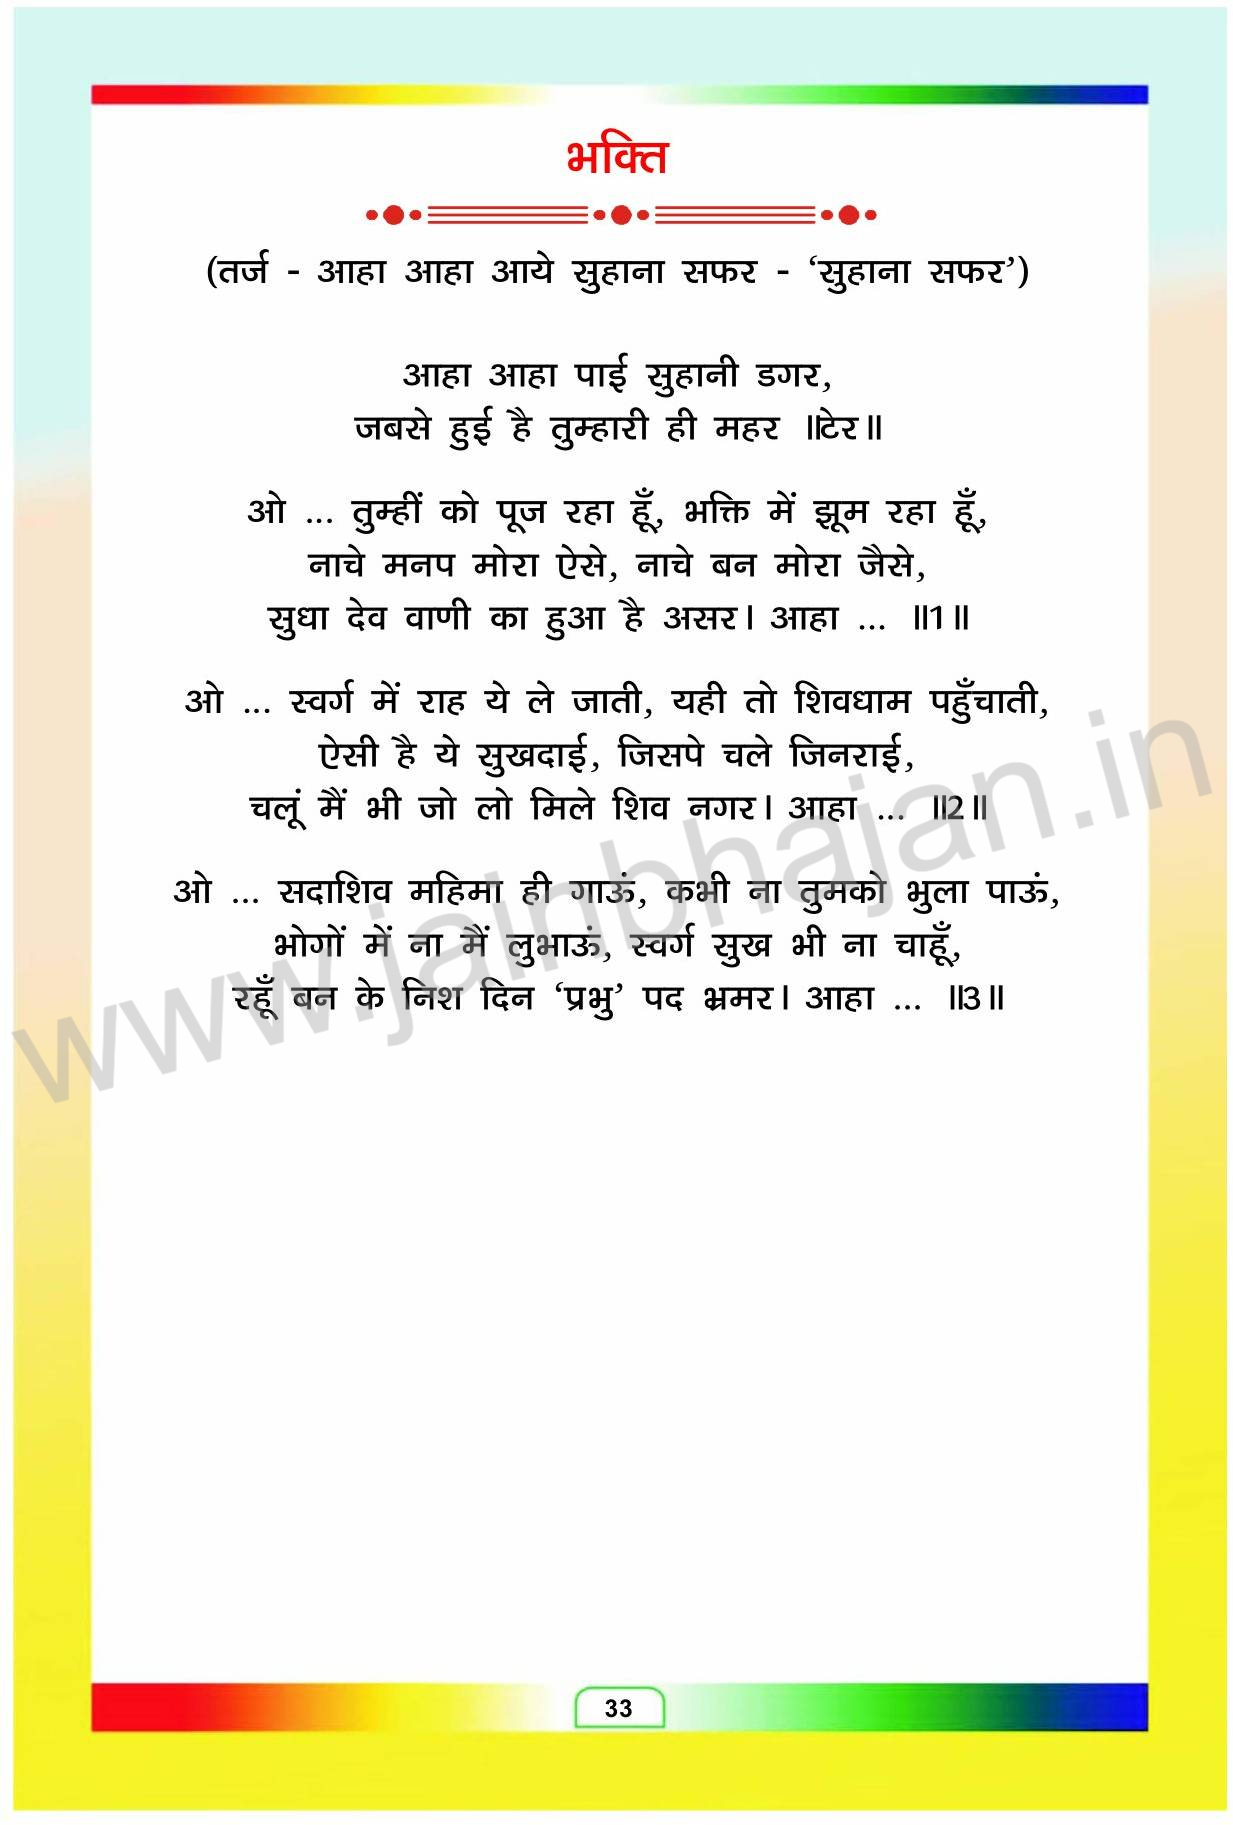 भक्ति
(तर्ज - आहा आहा आये सुहाना सफर - ‘सुहाना सफर’)
आहा आहा पाई सुहानी डगर,
जबसे हुई है तुम्हारी ही महर ॥टेर॥
ओ ... तुम्हीं को पूज रहा हूँ, भक्ति में झूम रहा हूँ,
नाचे मनप मोरा ऐसे, नाचे बन मोरा जैसे,
सुधा देव वाणी का हुआ है असर। आहा ... ॥1॥
ओ ... स्वर्ग में राह ये ले जाती, यही तो शिवधाम पहुँचाती,
ऐसी है ये सुखदाई, जिसपे चले जिनराई,
चलूं मैं भी जो लो मिले शिव नगर। आहा ... ॥2॥
ओ ... सदाशिव महिमा ही गाऊं, कभी ना तुमको भुला पाऊं,
भोगों में ना मैं लुभाऊं, स्वर्ग सुख भी ना चाहूँ,
रहूँ बन के निश दिन ‘प्रभु’ पद भ्रमर। आहा ... ॥3॥
www.jainbhajan.in
33